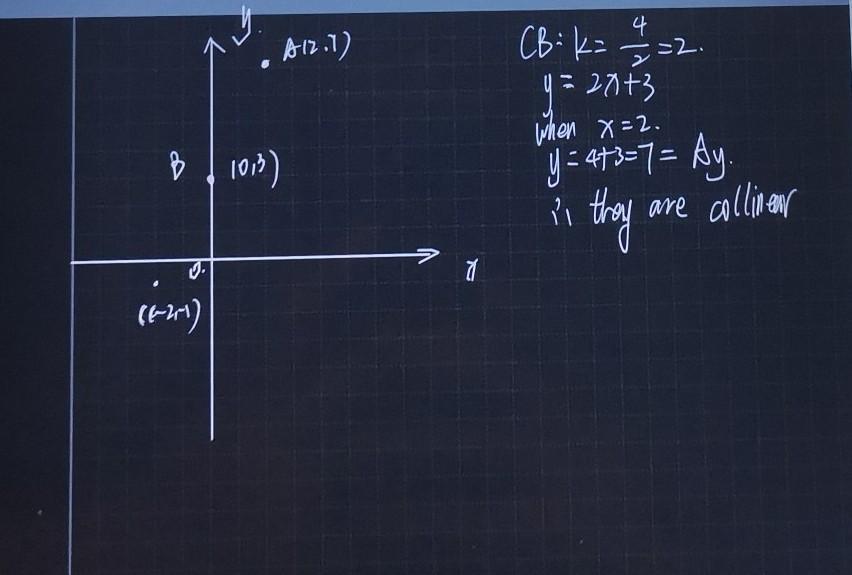 y
A(2,7)
B (0,3)
O
x
C(-2,-1)
CB: k = 4/2 = 2.
y = 2x+3
when x = 2.
y = 4+3 = 7 = Ay.
∴ they are collinear